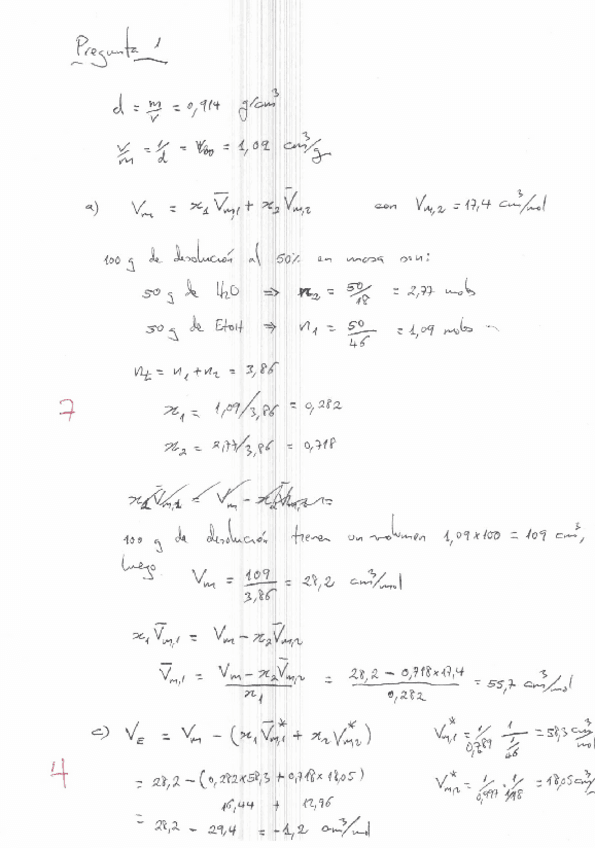 Pregunta 1
d = m/v = 0,914 g/cm³
V/m = 1/d = = 1,09 cm³/g
a) Vm = x₁ V̄m,1 + x₂ V̄m,2 con Vm,2 = 17,4 cm³/mol
100 g de disolución al 50% en masa son:
50 g de H2O ⇒ n₂ = 50/18 = 2,77 mols
50 g de EtOH ⇒ n₁ = 50/46 = 1,09 mols
nt = n₁ + n₂ = 3,86
7 x₁ = 1,09/3,86 = 0,282
x₂ = 2,77/3,86 = 0,718
100 g de disolución tienen un volumen 1,09x100 = 109 cm³,
luego
Vm = 109/3,86 = 28,2 cm³/mol
x₁ V̄m,1 = Vm - x₂ V̄m,2
V̄m,1 = (Vm - x₂ V̄m,2)/x₁ = (28,2 - 0,718x17,4)/0,282 = 55,7 cm³/mol
c) VE = Vm - (x₁ V̄m,1* + x₂ Vm,2*) Vm,1* = 1/0,789 · 1/(1/46) = 58,3 cm³/mol
4 = 28,2 - (0,282x58,3 + 0,718x18,05) Vm,2* = 1/0,997 · = 18,05 cm³/
16,44 + 12,96
= 28,2 - 29,4 = -1,2 cm³/mol